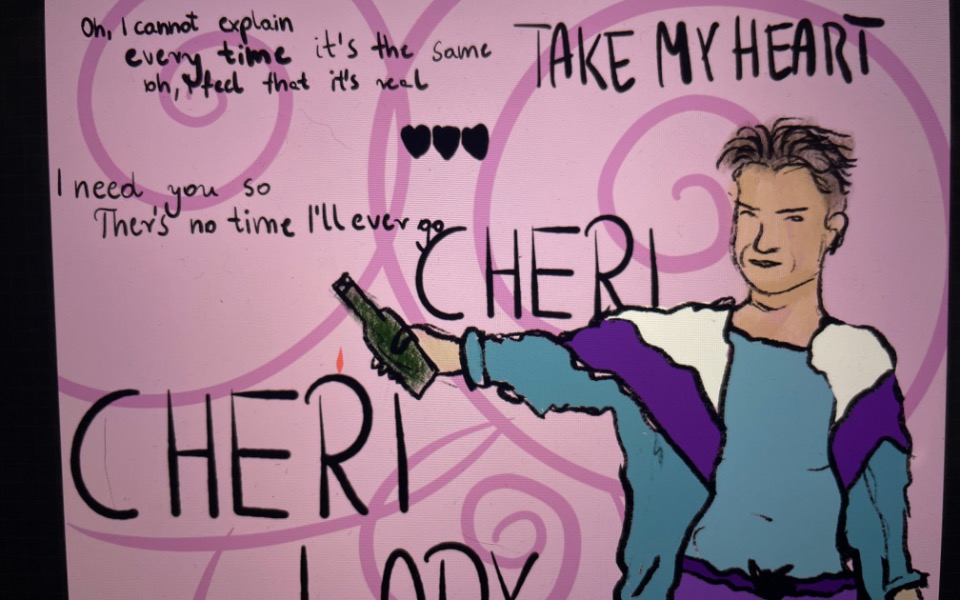 Oh, I cannot explain
every time it's the same
oh, I feel that it's real
TAKE MY HEART
I need you so
Ther's no time I'll ever go
CHERI
CHERI
LADY